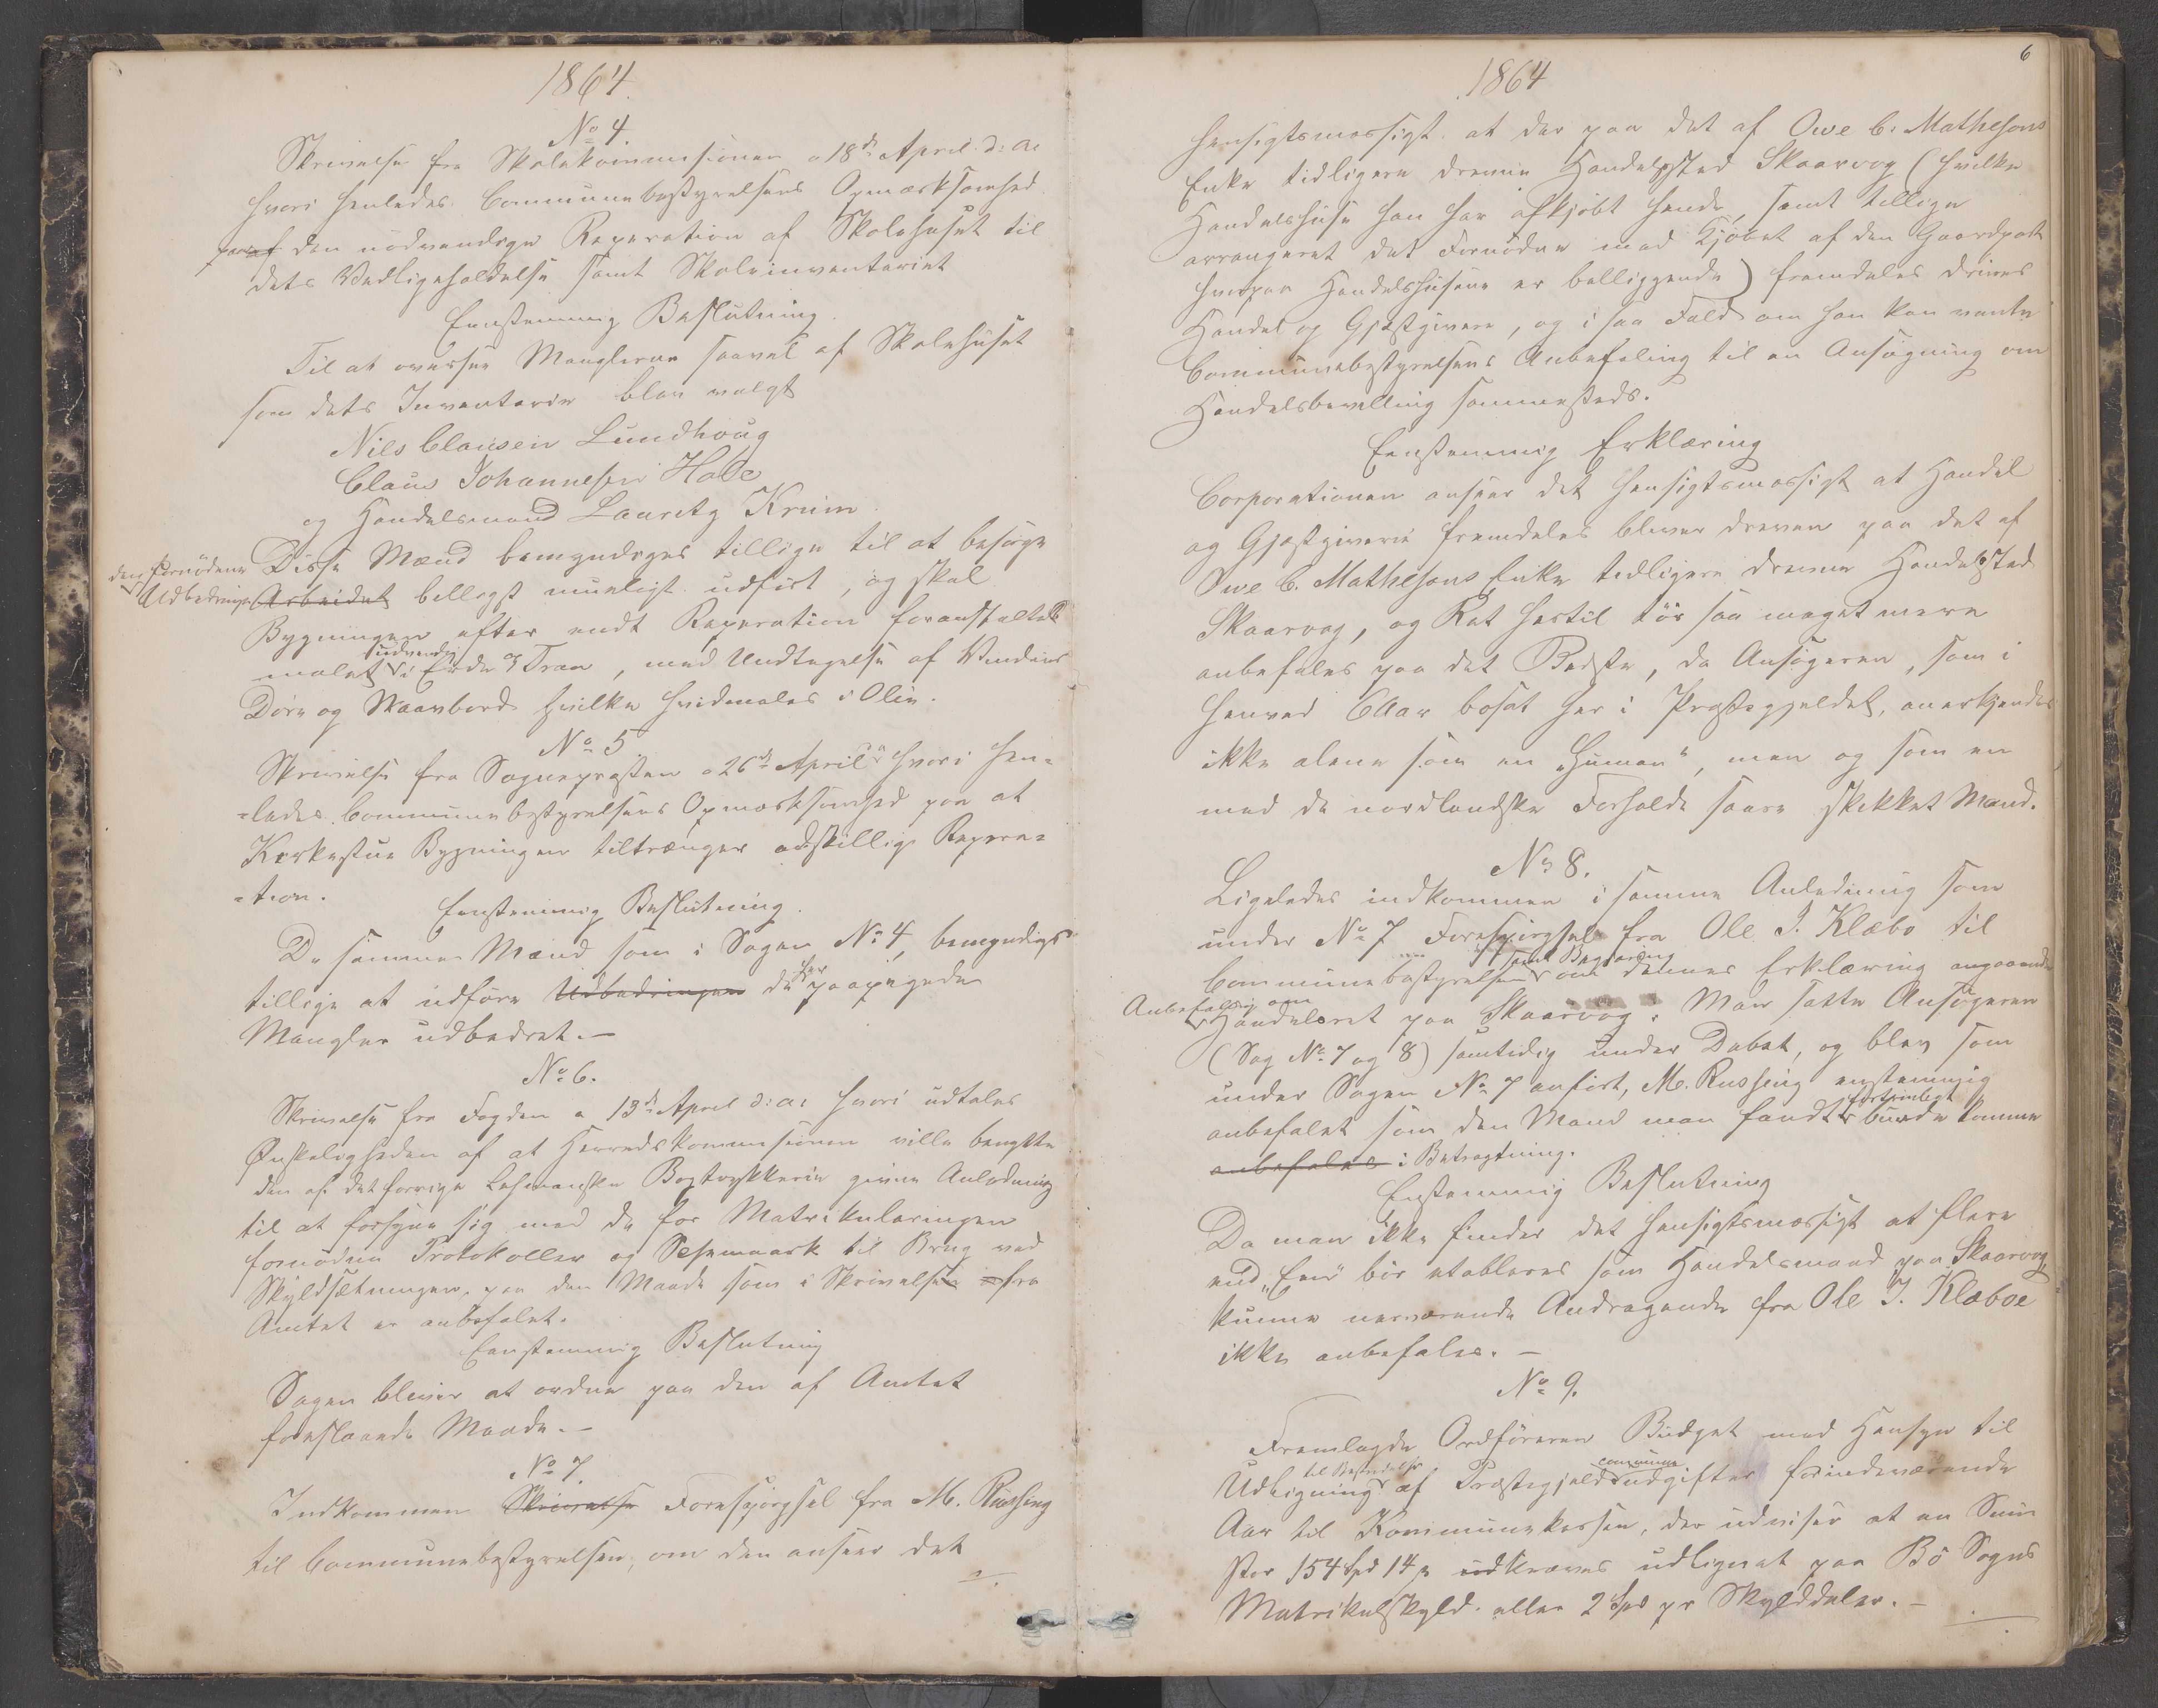 1864.
No 4.
Skrivelse fra Skolekommisionen a 18de April d: A:
hvori henledes Communebestyrelsens Opmærksomhed
paa den nödvendige Reperation af Skolehuset til
dets Vedligeholdelse samt Skoleinventariet
Eenstemmig Beslutning.
Til at overse Manglerne saavel af Skolehuset
som dets Inventarie blev valgt
Nils Clausen Lundhoug
Claus Johannesen Hole
og Handelsmand Lauritz Krüm.
Disse Mænd bemyndiges tillige til at besörge
den fornödene Udbedring Arbeidet billigst mueligt udfört, og skal
Bygningen efter endt Reperation foranstaltet
malet udvendig i Erde og Tran, med Undtagelse af Vinduer
Döre og Skaarbord hvilke hvidmales i Olie.
No 5
Skrivelse fra Sognepræsten a 26de April hvori hen-
-ledes Communebestyrelsens Opmærksomhed paa at
Kirkestue Bygningen tiltrænger adskillig Repera-
-tion.
Eenstemmig Beslutning.
De samme Mænd som i Sagen No 4, bemyndiges
tillige at udföre Udbedringen de her paapegede
Mangler udbedret.-
No 6.
Skrivelse fra Fogden a 13de April d: A: hvori udtales
Ønskeligheden af at Herredskommisionen ville benytte
den af det forrige Lehmanske Bogtrykkerie givne Anledning
til at forsyne sig med de for Matrikuleringen
fornödne Protokoller og Schemaark til Brug ved
Skyldsætningen, paa den Maade som i Skrivelse fra
Amtet er anbefalet.
Eenstemmig Beslutning
Sagen bliver at ordne paa den af Amtet
foreslaaede Maade.-
No 7.
Indkommen Skrivelse Forespörgsel fra M. Russing
til Communebestyrelsen, om den anseer det
1864
6
hensigtsmæssigt at der paa det af Owe C. Mathesons
Enke tidligere drevne Handelssted Skaarvog (hvilke
Handelshuse han har afkjöbt hende, samt tillige
arrangeret det Fornödne med Kjöbet af den Gaardpart
hvorpaa Handelshusene er beliggende) fremdeles drives
Handel og Gjæstgiverie, og i saa Fald om han kan vente
Communebestyrelsens Anbefaling til en Ansögning om
Handelsbevilling sammesteds.
Eenstemmig Erklæring
Corporationen anseer det hensigtsmæssigt at Handel
og Gjæstgiverie fremdeles bliver dreven paa det af
Owe C. Mathesons Enke tidligere drevne Handelssted
Skaarvog, og Ret hertil tör saa meget mere
anbefales paa det Bedste, da Ansögeren, som i
henved 6 Aar bosat her i Præstegjeldet, anerkjendes
ikke alene som en "Human", men og som en
med de nordlandske Forholde saare skikket Mand.
No 8.
Ligeledes indkommen i samme Anledning som
under No 7 Forespörgsel fra Ole J. Klæbo til
Communebestyrelsen samt Begjæring om dennes Erklæring angaaende
Anbefaling om Handelsret paa Skaarvog. Man satte Ansögeren
(Sag No 7 og 8) samtidig under Debat, og blev som
under Sagen No 7 anfört, M. Russing enstemmig
anbefalet som den Mand man fandt fortrinligt burde komme
anbefales i Betragtning.
Enstemmig Beslutning
Da man ikke finder det hensigtsmæssigt at flere
end "Een" bör etableres som Handelsmand paa Skaarvog,
kunne nærværende Andragende fra Ole J. Klæboe
ikke anbefales.-
No 9.
Fremlagde Ordföreren Budget med Hensyn til
Udligning til Bestridelse af Præstegjelds commune udgifter for indeværende
Aar til Kommunekassen, der udviser at en Sum
stor 154 Spd 14 s udkræves udlignet paa Bö Sogns
Matrikulskyld eller 2 Spd pr Skylddaler.-